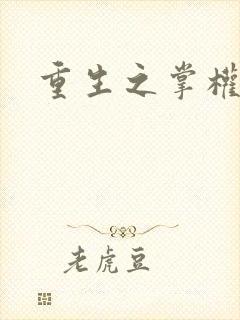 重生之掌權
老虎豆